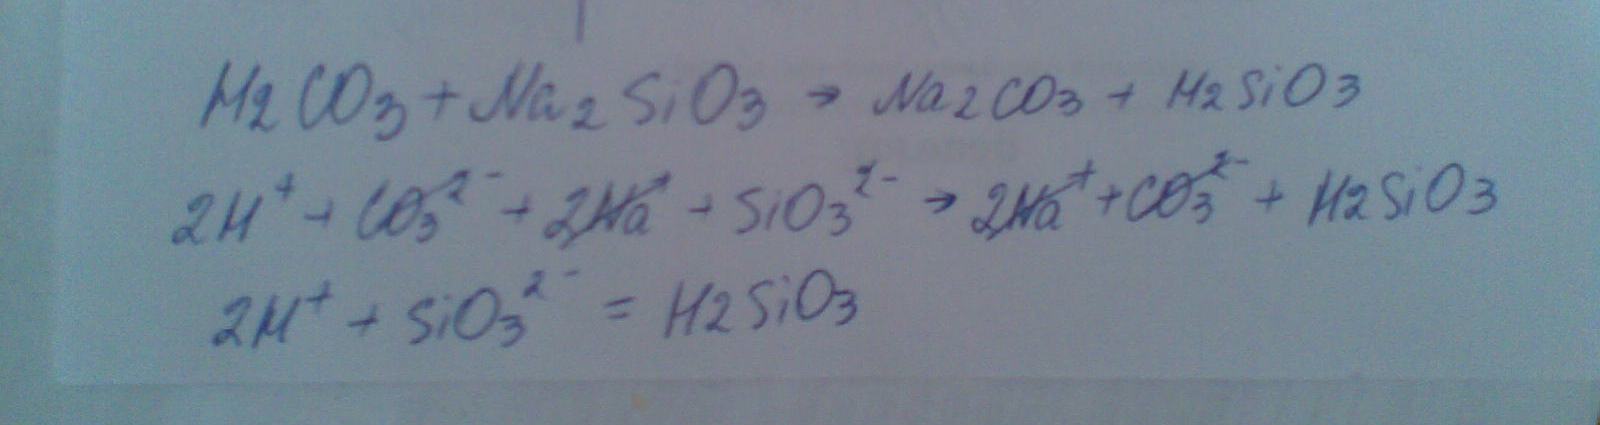 H2CO3 + Na2SiO3 → Na2CO3 + H2SiO3
2H⁺ + CO3²⁻ + 2Na⁺ + SiO3²⁻ → 2Na⁺ + CO3²⁻ + H2SiO3
2H⁺ + SiO3²⁻ = H2SiO3